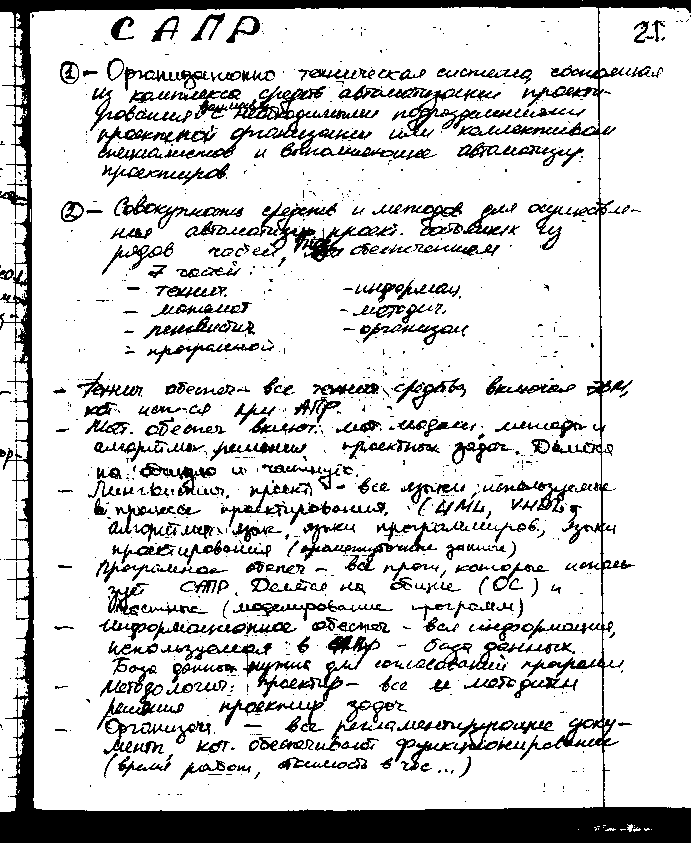 САПР
21.
① – Организационно техническая система, состоящая
из комплекса средств автоматизации проекти-
рования с необходимыми подразделениями
проектной организации или коллективом
специалистов и выполняющие автоматизир.
проектиров.
② – Совокупность средств и методов для осуществле-
ния автоматизир. проект. из
рядов частей, обеспечением
7 частей:
– технич. – информац.
– математ – методич.
– лингвистич – организац
– програмной
– Технич обеспеч – все технич средства, включая ЭВМ,
кот. исп-ся при АПР.
– Мат. обеспеч включ. мат. модели, методы и
алгоритмы решения проектных задач. Делится
на общую и частную.
– Лингвистич. проект – все языки, используемые
в процессе проектирования. (UML, VHDL,
алгоритм. язык, языки программиров, языки
проектирования (промежуточные записи)
– Програмное обеспеч – все прогр, которые исполь-
зует САПР. Делится на общие (ОС) и
частные (моделирование программ)
– Информационное обеспеч – вся информация,
используемая в САПР – база данных.
База данных нужна для согласований программ.
– Методологич. проектир – все и методики
решения проектных задач
– Организац. – все регламентирующие доку-
менты кот. обеспечивают функционирование
(время работы, стоимость в час...)